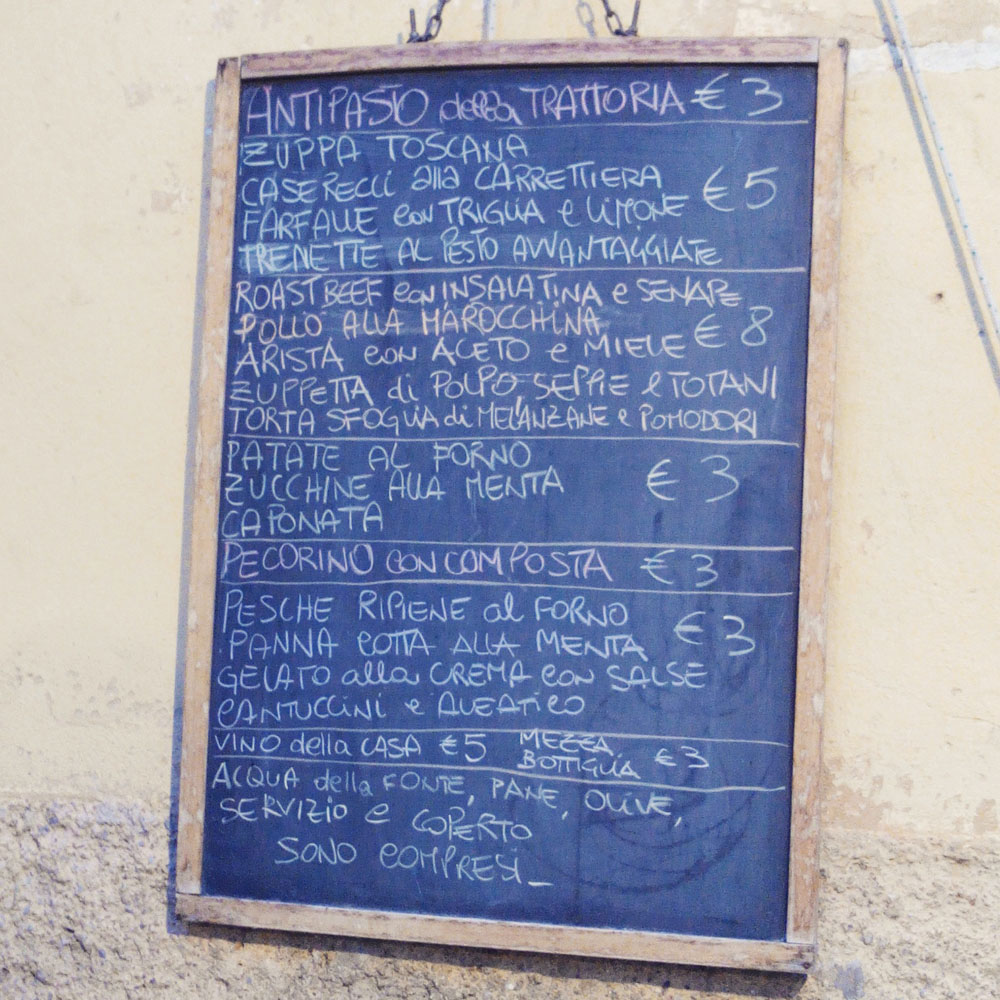 ANTIPASTO della TRATTORIA € 3
ZUPPA TOSCANA
CASERECCI alla CARRETTIERA € 5
FARFALLE con TRIGLIA e LIMONE
TRENETTE AL PESTO AVVANTAGGIATE
ROAST BEEF con INSALATINA e SENAPE
POLLO ALLA MAROCCHINA € 8
ARISTA con ACETO e MIELE
ZUPPETTA di POLPO, SEPPIE e TOTANI
TORTA SFOGLIA di MELANZANE e POMODORI
PATATE AL FORNO
ZUCCHINE ALLA MENTA € 3
CAPONATA
PECORINO CON COMPOSTA € 3
PESCHE RIPIENE al FORNO € 3
PANNA COTTA ALLA MENTA
GELATO alla CREMA con SALSE
CANTUCCINI e ALEATICO
VINO della CASA € 5 MEZZA BOTTIGLIA € 3
ACQUA della FONTE, PANE, OLIVE,
SERVIZIO e COPERTO
SONO COMPRESI_